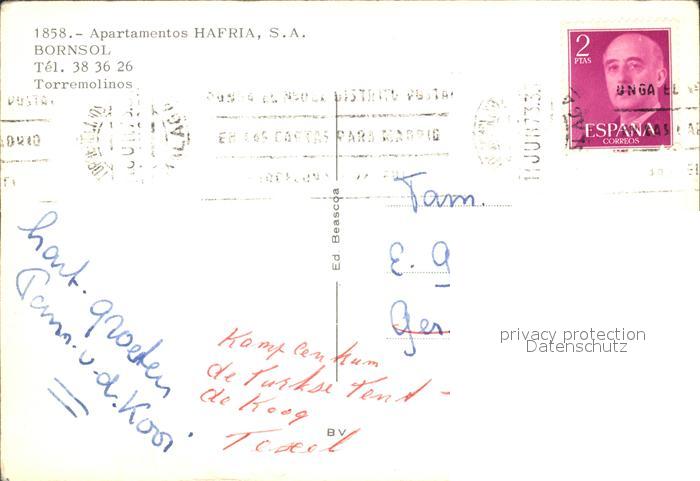 1858.- Apartamentos HAFRIA, S.A.
BORNSOL
Tél. 38 36 26
Torremolinos
2
PTAS
ESPAÑA
CORREOS
PONGA EL
EN LAS CARTAS PARA MADRID
Ed. Beascoa
Fam.
E. G
Ger
hart. groeten
Fam. v.d. Kooi.
Kampcentrum
de Turkse Tent -
de Koog
Texel
BV
privacy protection
Datenschutz